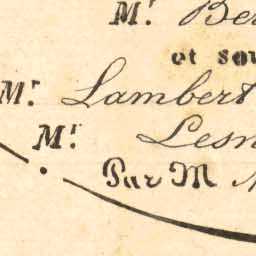 Mr. Ber
et sou
Mr. Lambert
Mr. Lesn
Par M